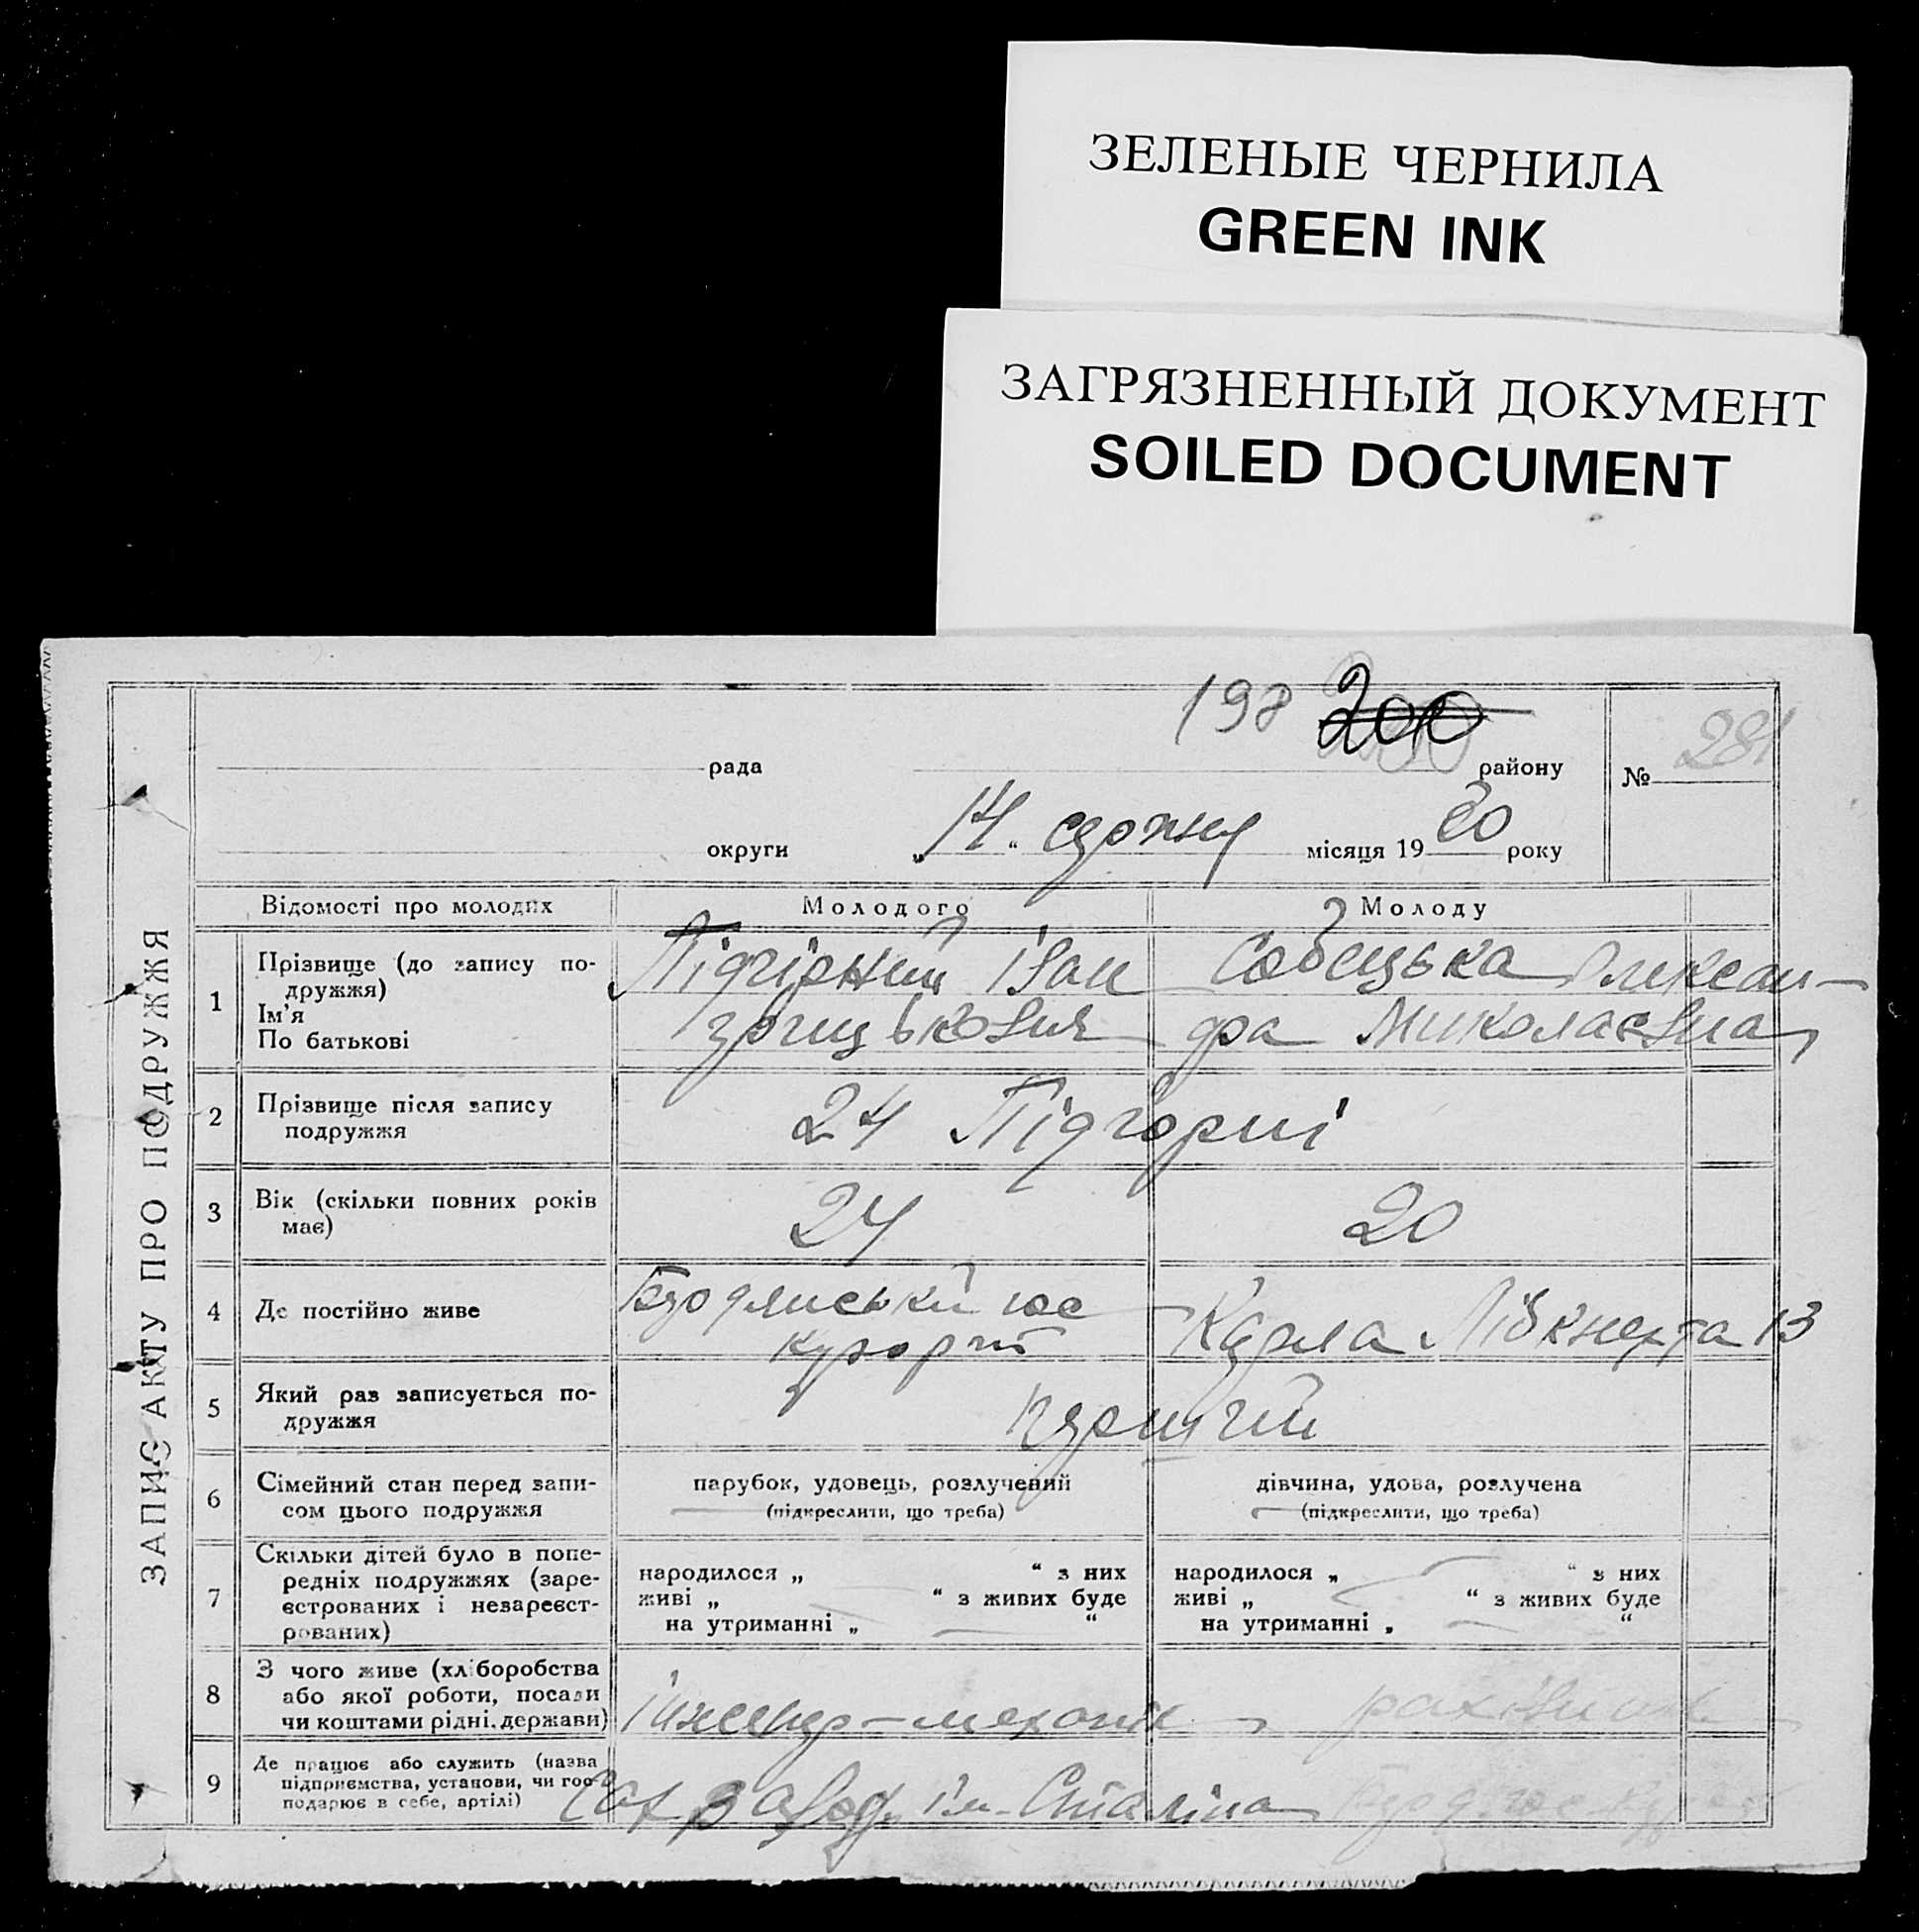 ЗЕЛЕНЫЕ ЧЕРНИЛА
GREEN INK
ЗАГРЯЗНЕННЫЙ ДОКУМЕНТ
SOILED DOCUMENT
ЗАПИС АКТУ ПРО ПОДРУЖЖЯ
198 200
рада району № 281
округи „14“ місяця 1930 року
Відомості про молодих Молодого Молоду
1 Прізвище (до запису по-
дружжя)
Ім'я
По батькові
Підгірний Іван Собецька Олексан-
Грицькович дра Миколаєвна
2 Прізвище після запису
подружжя
24 Підгорні
3 Вік (скільки повних років
має)
24 20
4 Де постійно живе
курорт Карла Лібкнехта 13
5 Який раз записується по-
дружжя
перший
6 Сімейний стан перед запи-
сом цього подружжя
парубок, удовець, розлучений дівчина, удова, розлучена
(підкреслити, що треба) (підкреслити, що треба)
7 Скільки дітей було в попе-
редніх подружжях (заре-
єстрованих і незареєст-
рованих)
народилося „ “ з них народилося „ “ з них
живі „ “ з живих буде живі „ “ з живих буде
на утриманні „ “ на утриманні „ “
8 З чого живе (хліборобства
або якої роботи, посади
чи коштами рідні, держави)
інженер-механік
9 Де працює або служить (назва
підприємства, установи, чи гос-
подарює в себе, артілі)
Сах завод ім. Сталіна